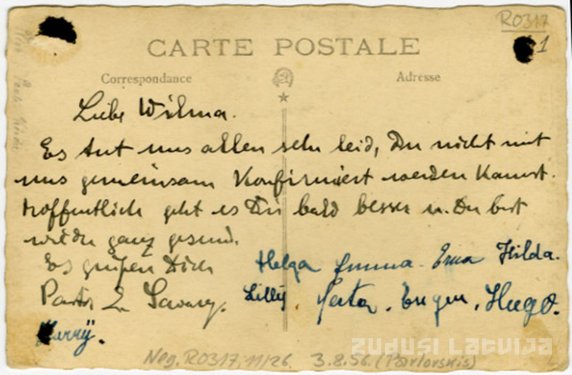 R0317
1
CARTE POSTALE
Correspondance
Adresse
Liebe Wilma.
Es tut uns allen sehr leid, Du nicht mit
uns gemeinsam Konfirmiert werden kannst.
Hoffentlich geht es Dir bald besser u. Du bist
wieder ganz gesund.
Es grüßen Dich
Helga Emma. Erna Hilda.
Pastor
Lilly. Eugen. Hugo.
Harry.
Neg. R0317, 11/26. 3.8.56. (Pavlovskis)
ZUDUSI LATVIJA